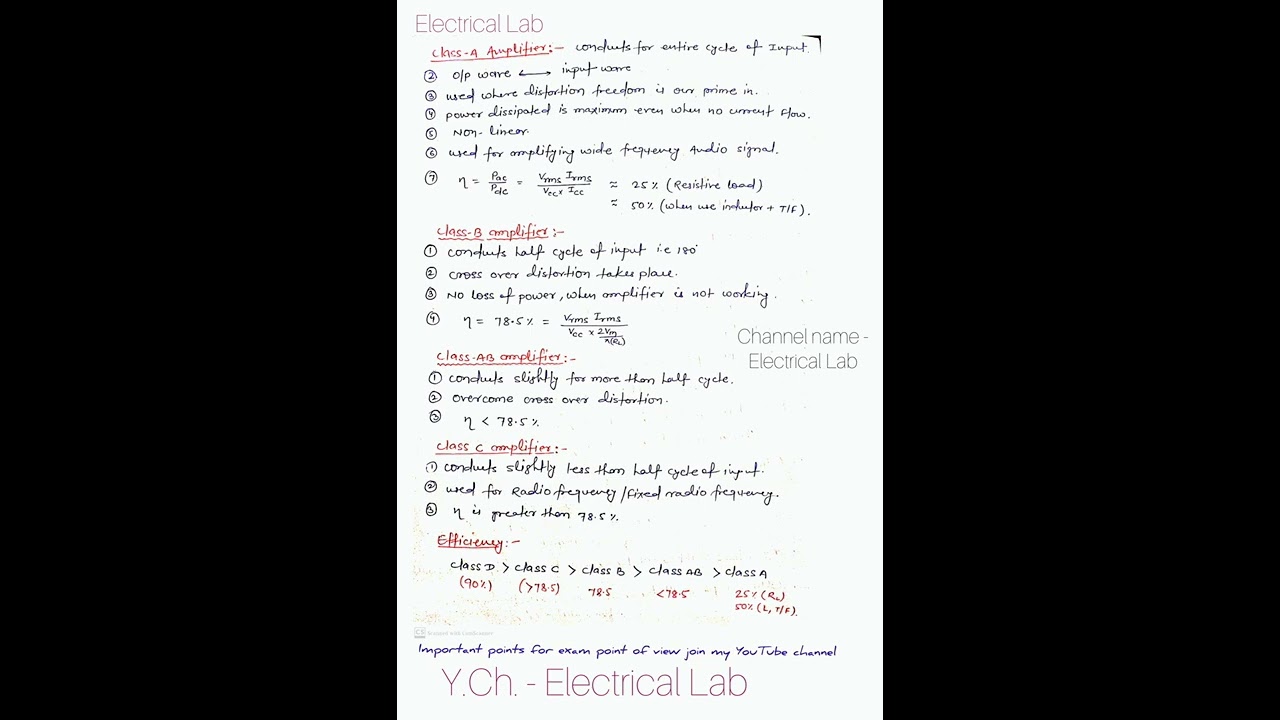 Electrical Lab
Class-A Amplifier:- conducts for entire cycle of Input.
② O/P wave ⟷ input wave
③ used where distortion freedom is our prime in.
④ power dissipated is maximum even when no current flow.
⑤ Non-linear.
⑥ used for amplifying wide frequency Audio signal.
⑦ η = Pac/Pdc = Vrms Irms/Vcc x Icc ≈ 25% (Resistive load)
≈ 50% (when use inductor + T/F).
Class-B amplifier:-
① conducts half cycle of input i.e 180°
② cross over distortion takes place.
③ No loss of power, when amplifier is not working.
④ η = 78.5% = Vrms Irms/Vcc x 2Vm/π(RL)
Channel name -
Electrical Lab
Class-AB amplifier:-
① conducts slightly for more than half cycle.
② overcome cross over distortion.
③ η < 78.5%
Class C amplifier:-
① conducts slightly less than half cycle of input.
② used for Radio frequency/fixed radio frequency.
③ η is greater than 78.5%.
Efficiency:-
class D > class C > class B > class AB > class A
(90%) (>78.5) 78.5 <78.5 25% (RL)
50% (L, T/F).
CS Scanned with CamScanner
Important points for exam point of view join my YouTube channel
Y.Ch. - Electrical Lab